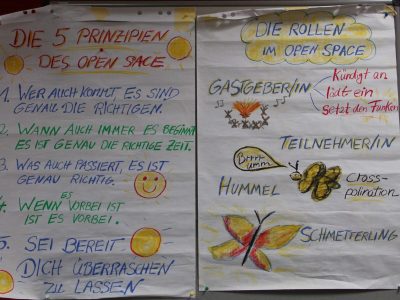 DIE 5 PRINZIPIEN
DES OPEN SPACE
1. WER AUCH KOMMT, ES SIND
GENAU DIE RICHTIGEN.
2. WANN AUCH IMMER ES BEGINNT
ES IST GENAU DIE RICHTIGE ZEIT.
3. WAS AUCH PASSIERT, ES IST
GENAU RICHTIG.
4. WENN ES VORBEI IST
IST ES VORBEI.
5. SEI BEREIT
DICH ÜBERRASCHEN
ZU LASSEN
DIE ROLLEN
IM OPEN SPACE
GASTGEBER/IN
Kündigt an
lädt ein
setzt den Funken
TEILNEHMER/IN
Brrr-
umm
HUMMEL
Cross-
polination
SCHMETTERLING